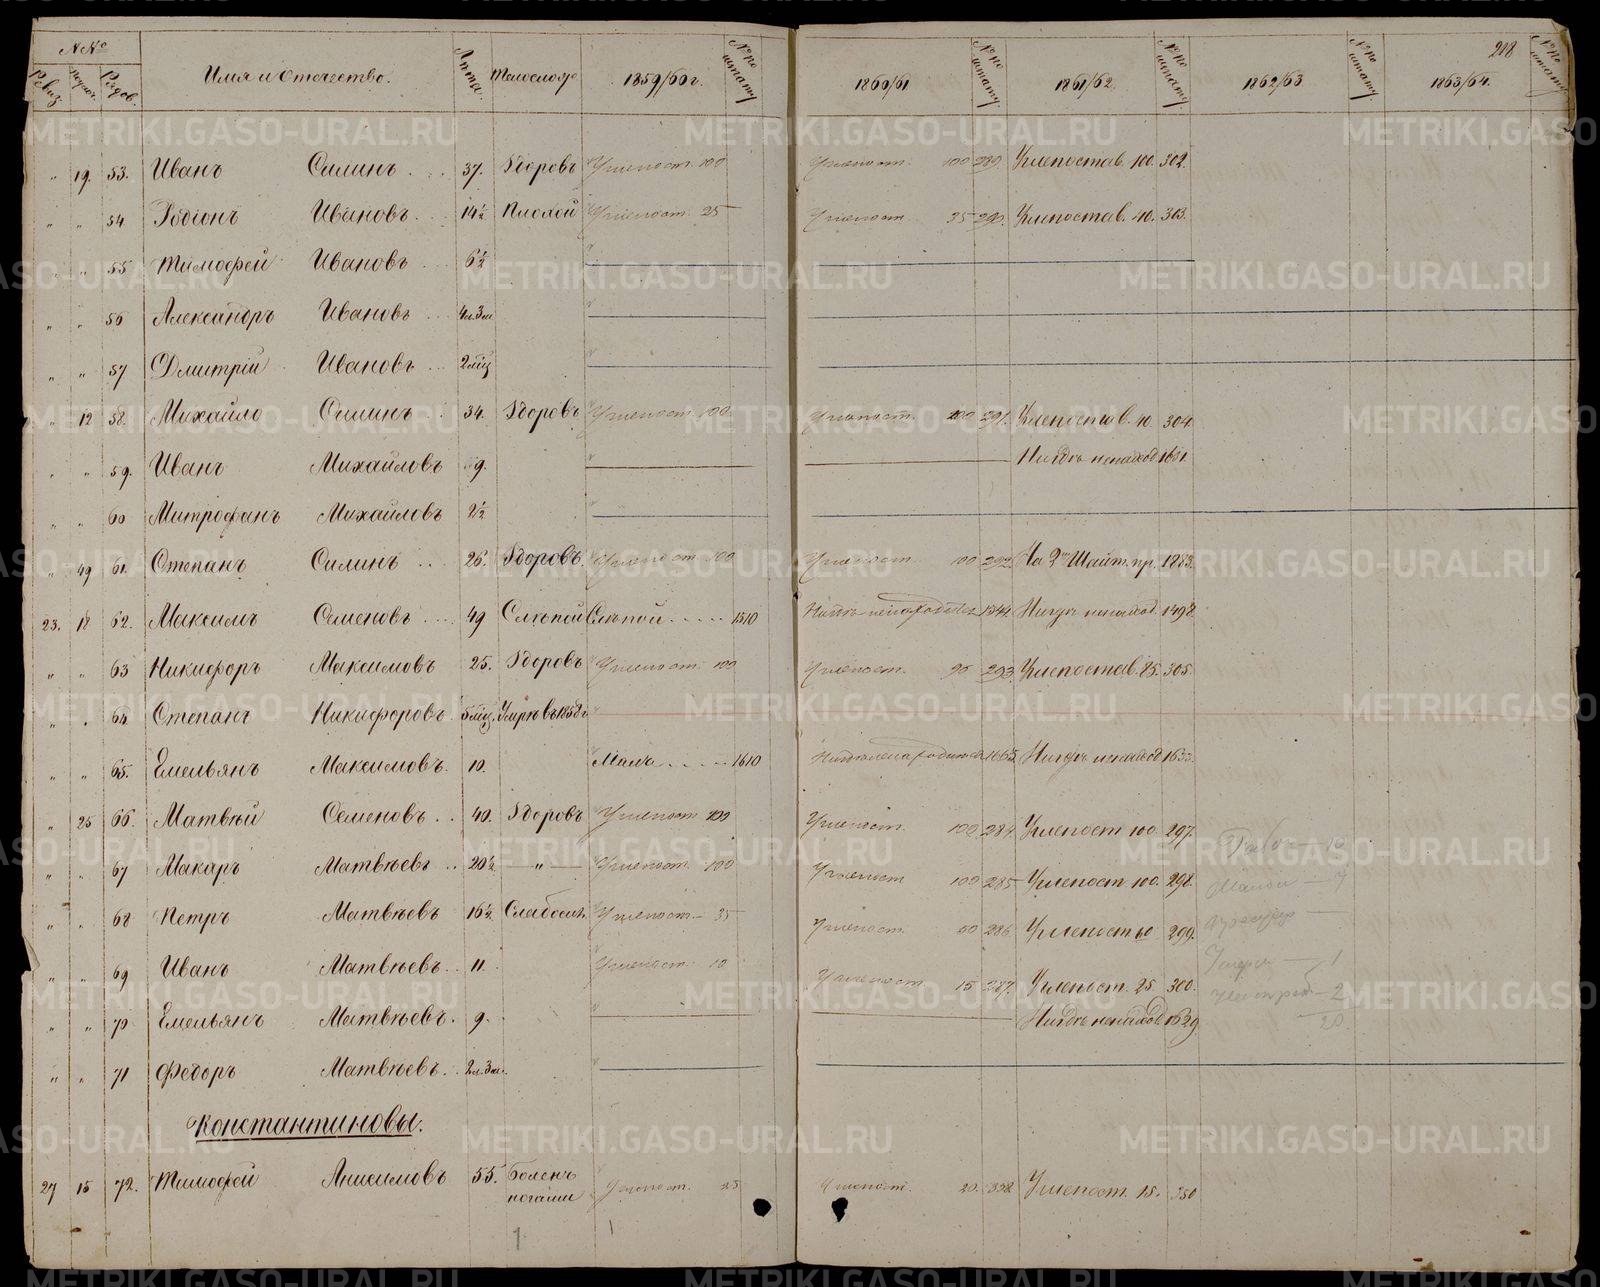 218
N No Имя и Отчество. Лѣта. Телослоус 1859/60 г. No по штату 1860/61 No по штату 1861/62 No по штату 1862/63 No по штату 1863/64. No по штату
Ревиз. Рядов.
" 19. 53. Иванъ Силинъ 37. Здоровъ Углепост. 100 Углепост. 100 289. Углепостав. 100. 302.
" " 54 Родіонъ Ивановъ 14½ Плохой Углепост. 25 Углепост 35 290. Углепостав. 40. 303.
" " 55 Тимофей Ивановъ 6½
" " 56 Александръ Ивановъ 4 л. 3 м
" " 57 Дмитрій Ивановъ 2 мѣс
" 12 58. Михайло Силинъ 34. Здоровъ Углепост. 100 Углепост. 100 291. Углепостав. 40 304.
" " 59. Иванъ Михайловъ 9. Нигдѣ ненаход 1631.
" " 60 Митрофанъ Михайловъ 2½
" 49 61. Степанъ Силинъ 26. Здоровъ. Углепост 100 Углепост. 100 292. На 2й Шайт. пр. 1283.
23. 18 62. Максимъ Семеновъ 49 Слѣпой Слѣпой 1510 Нигдѣ ненаходится 1344. Нигдѣ ненаход. 1498.
" " 63 Никифоръ Максимовъ 25. Здоровъ Углепост. 100 Углепост. 90 293. Углепостав. 85. 305.
" " 64. Степанъ Никифоровъ. 5 мѣс. Умрѣ въ 1858 г.
" " 65. Емельянъ Максимовъ. 10. Малъ 1610 Нигдѣ ненаходится 1665. Нигдѣ ненаход 1633.
" 25 66. Матвѣй Семеновъ 40. Здоровъ Углепост 100 Углепост. 100 284. Углепост 100. 297.
" " 67 Макаръ Матвѣевъ 20½ " Углепост. 100 Углепост 100 285 Углепост 100. 298.
" " 68 Петръ Матвѣевъ 16½ Слабосил. Углепост. 35 Углепост. 50 286 Углепост 50 299.
" " 69 Иванъ Матвѣевъ 11. Углепост. 10 Углепост. 15 287. Углепост. 25. 300.
" " 70 Емельянъ Матвѣевъ. 9. Нигдѣ ненаход. 1629
" " 71 Федоръ Матвѣевъ. 2 л. 3 м.
Константиновы.
27 15 72. Тимофей Анисимовъ 55. Боленъ ногами Углепост. 25 Углепост. 20. 338. Углепост. 15. 350
METRIKI.GASO-URAL.RU